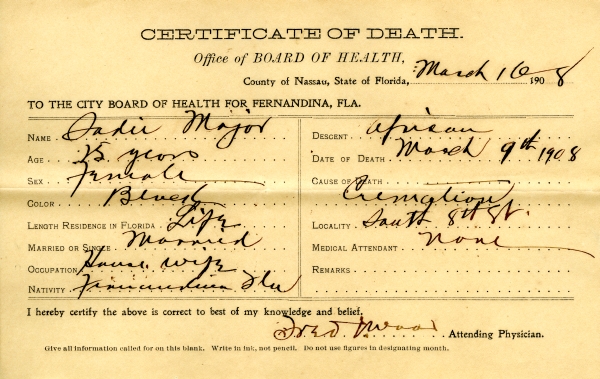 CERTIFICATE OF DEATH.
Office of BOARD OF HEALTH,
County of Nassau, State of Florida, March 16 1908
TO THE CITY BOARD OF HEALTH FOR FERNANDINA, FLA.
NAME Sadie Major
AGE 25 years
SEX Female
COLOR Black
LENGTH RESIDENCE IN FLORIDA Life
MARRIED OR SINGLE Married
OCCUPATION House wife
NATIVITY Fernandina Fla
DESCENT African
DATE OF DEATH March 9th 1908
CAUSE OF DEATH
Cremation
LOCALITY South 8th St.
MEDICAL ATTENDANT None
REMARKS
I hereby certify the above is correct to best of my knowledge and belief.
Fred Wood Attending Physician.
Give all information called for on this blank. Write in ink, not pencil. Do not use figures in designating month.